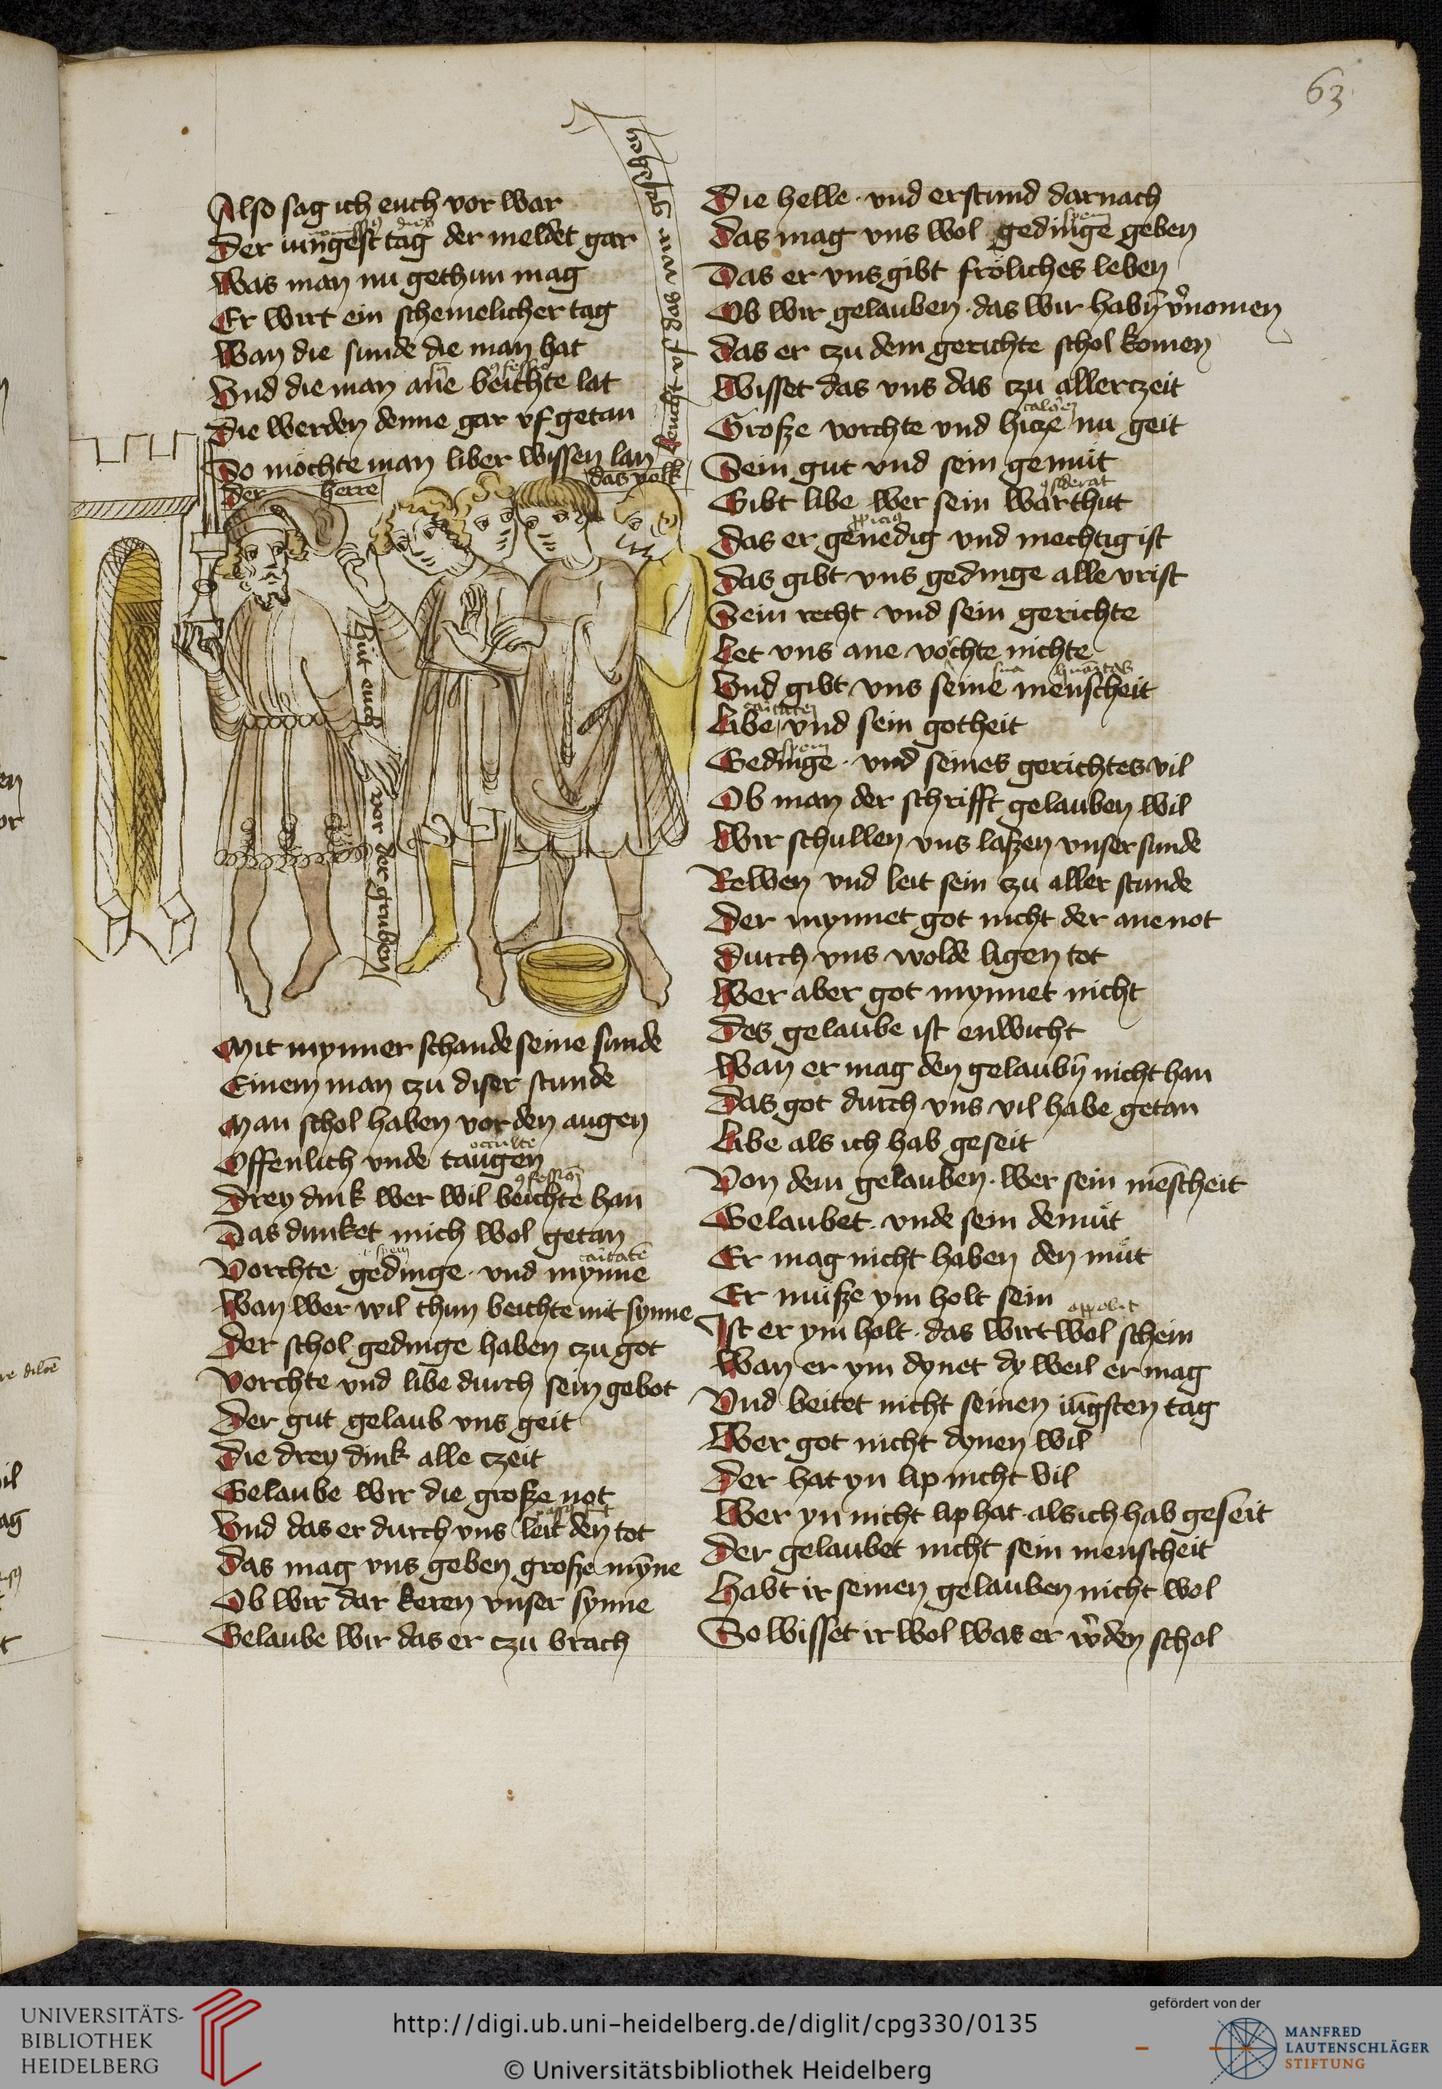 63
Also sag ich euch vor war
Der iungest tag der meldet gar
Was man nu gethun mag
Er wirt ein schemelicher tag
Wan die sunde die man hat
Vnd die man ane beichte lat
Die werden denne gar vf getan
So mochte man liber wissen lan
der herre
das volk
leucht vf das wir gesehen
Hüt euch vor der gruben
Mit mynner schande seine sunde
Einem man czu diser stunde
Man schol haben vor den augen
occulte
Offenlich vnde taugen
Drey dink wer wil beichte han
Das dunket mich wol getan
spem caritatē
Vorchte gedinge · vnd mynne
Wan wer wil thun beichte mit synne
Der schol gedinge haben czu got
Vorchte vnd libe durch sein gebot
Der gut gelaub vns geit
Die drey dink alle czeit
Gelaube wir die große not
Vnd das er durch vns leit den tot
Das mag vns geben große mȳne
Ob wir dar keren vnser synne
Gelaube wir das er czu brach
Die helle · vnd erstund darnach
spem
Das mag vns wol gedinge geben
Das er vns gibt fröliches leben
Ob wir gelauben · das wir habn̄ v'nomen
Das er czu dem gerichte schol komen
Wisset das vns das czu allerczeit
Große vorchte vnd hicze nu geit
Sein gut vnd sein gemüt
Gibt libe wer sein warthut
Das er genedig vnd mechtig ist
Das gibt vns gedinge alle vrist
Sein recht vnd sein gerichte
Let vns ane vochte nichte
Vnd gibt vns seine menscheit
Libe vnd sein gotheit
spem
Gedinge · vnd seines gerichtes vil
Ob man der schrifft gelauben wil
Wir schullen vns laßen vnser sunde
Rewen vnd leit sein czu aller stunde
Der mynnet got nicht der ane not
Durch vns wolde ligen tot
Wer aber got mynnet nicht
Des gelaube ist enwicht
Wan er mag den gelaubn̄ nicht han
Das got durch vns vil habe getan
Libe als ich hab geseit
Von dem gelauben · wer sein mēscheit
Gelaubet · vnde sein demüt
Er mag nicht haben den müt
Er müße ym holt sein
Ist er ym holt · das wirt wol schein
Wan er ym dynet dy weil er mag
Vnd beitet nicht seinen iūgsten tag
Wer got nicht dynen wil
Der hat yn lip nicht vil
Wer yn nicht lip hat · als ich hab geseit
Der gelaubet nicht sein menscheit
Habt ir seinen gelauben nicht wol
So wisset ir wol was er w'den schol
UNIVERSITÄTS-
BIBLIOTHEK
HEIDELBERG
http://digi.ub.uni-heidelberg.de/diglit/cpg330/0135
© Universitätsbibliothek Heidelberg
gefördert von der
MANFRED
LAUTENSCHLÄGER
STIFTUNG